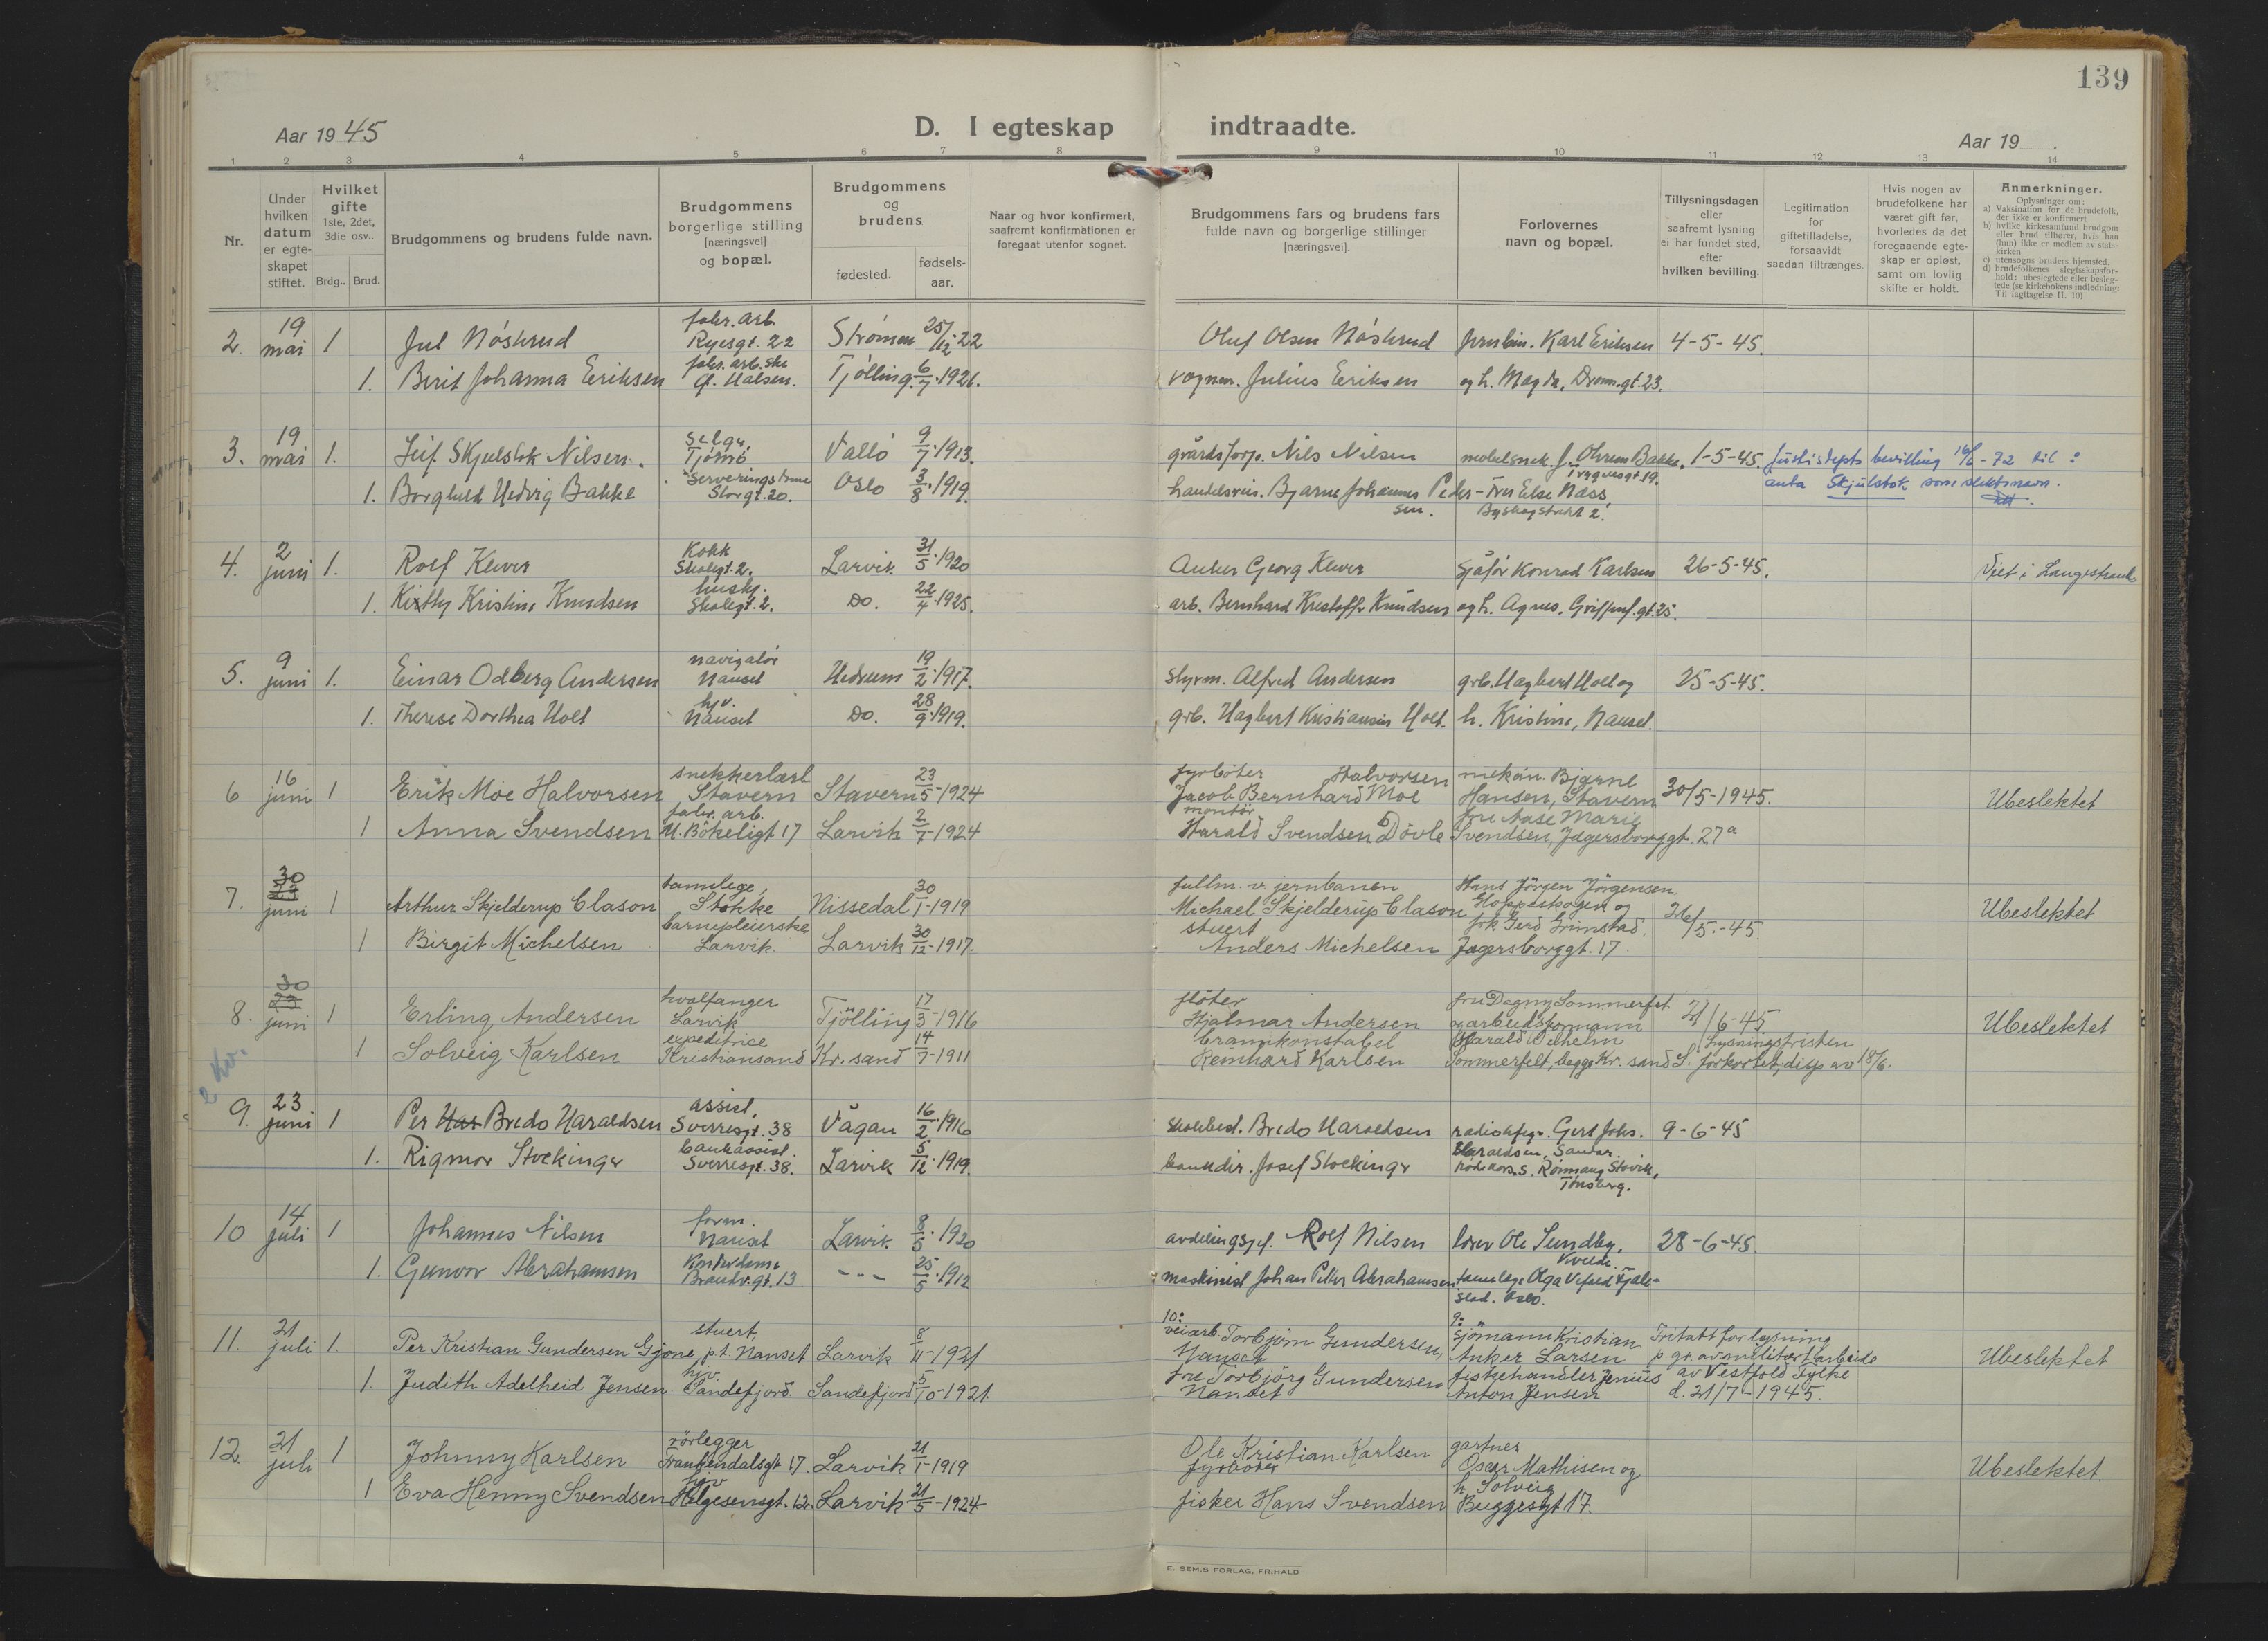 139
Aar 1945
D. I egteskap indtraadte.
Aar 19 .
1 2 3 4 5 6 7 8 9 10 11 12 13 14
Nr.
Under hvilken datum er egte-skapet stiftet.
Hvilket gifte
1ste, 2det, 3die osv..
Brdg.. Brud.
Brudgommens og brudens fulde navn.
Brudgommens borgerlige stilling [næringsvei] og bopæl.
Brudgommens og brudens
fødested.
fødsels-aar.
Naar og hvor konfirmert, saafremt konfirmationen er foregaat utenfor sognet.
Brudgommens fars og brudens fars fulde navn og borgerlige stillinger [næringsvei].
Forlovernes navn og bopæl.
Tillysningsdagen eller saafremt lysning ei har fundet sted, efter hvilken bevilling.
Legitimation for giftetilladelse, forsaavidt saadan tiltrænges.
Hvis nogen av brudefolkene har været gift før, hvorledes da det foregaaende egte-skap er opløst, samt om lovlig skifte er holdt.
Anmerkninger.
Oplysninger om:
a) Vaksination for de brudefolk, der ikke er konfirmert
b) hvilke kirkesamfund brudgom eller brud tilhører, hvis han (hun) ikke er medlem av stats-kirken
c) utensogns bruders hjemsted.
d) brudefolkenes slegtsskapsfor-hold: ubeslegtede eller besleg-tede (se kirkebokens indledning: Til iagttagelse II. 10)
2. 19 mai 1 Jul Nöstrud fabr. arb. Ryesgt. 22 Strömm 25/12-22 Oluf Olsen Nöstrud Karl Eriksen 4-5-45.
1. Berit Johanna Eriksen fabr. arb.ske Halsen. Tjölling 6/7.1926. vognm. Julius Eriksen og h. Magda, Dronn.gt. 23.
3. 19 mai 1. Leif Skjulstok Nilsen. selger, Tjömö Vallö 9/7.1913. gårdsforp. Nils Nilsen möbelsnek. J. Ohrem Bakke, Yngvesgt. 19. 1-5-45. Justisdepts bevilling 16/6-72 til:
1. Borghild Hedvig Bakke Serveringsdame Storgt. 20. Oslo 3/8.1919. handelsreis. Bjarne Johannes Pedersen. Fru Else Næss, Byskogstredet 2. anta Skjulstok som slektsnavn.
4. 2 juni 1. Rolf Klever Kokk Skolegt. 2. Larvik 31/5.1920 Anker Georg Klever sjåfør Konrad Karlsen 26-5-45. Viet i Langestrand
1. Kitty Kristine Knudsen hushj. Skolegt. 2. Do. 22/4.1925. arb. Bernhard Kristoffer Knudsen og h. Agnes, Griffenf.gt. 25.
5. 9 juni 1. Einar Odberg Andersen navigatör Nanset Hedrum 19/2.1917. styrm. Alfred Andersen grb. Hagbert Holt og 25-5-45.
1. Therese Dorthea Holt hjv. Nanset Do. 28/9.1919. grb. Hagbert Kristiansen Holt. h. Kristine, Nanset.
6 16 juni 1 Erik Moe Halvorsen snekkerlærl Stavern Stavern 23/5-1924 fyrböter Jacob Bernhard Moe Halvorsen mekan. Bjarne Hansen, Stavern 30/5-1945. Ubeslektet
1 Anna Svendsen fabr. arb. N. Bökeligt 17 Larvik 2/7-1924 montör Harald Svendsen Dövle fru Aase Marie Svendsen, Jegersborggt. 27a
7. 30 juni 1 Arthur Skjelderup Clason tannlege, Stokke Nissedal 30/1-1919 fullm. v. jernbanen Michael Skjelderup Clason Hans Jörgen Jörgensen, Hoppeskogen og 26/5.-45. Ubeslektet
1 Birgit Michelsen barnepleierske Larvik. Larvik 30/12-1917. stuert Anders Michelsen frk Gerd Grimstad, Jægersborggt. 17.
8. 30 juni 1 Erling Andersen hvalfanger Larvik Tjölling 17/3-1916 flöter Hjalmar Andersen fru Dagny Sommerfelt og arbeidsformann 21/6-45. Ubeslektet
1 Solveig Karlsen expeditrice Kristiansand Kr. sand 14/7-1911 brannkonstabel Reinhard Karlsen Harald Wilhelm Sommerfelt, begge Kr. sand S. Lysningsfristen forkortet, disp av 18/6.
2 Kv.
9. 23 juni 1 Per Har Bredo Haraldsen assist. Sverresgt. 38 Vågan 16/2.1916 skolebest. Bredo Haraldsen Gert Johs. Haraldsen, Sandar. 9-6-45
1. Rigmor Stockinger bankassist. Sverresgt. 38. Larvik 5/12.1919. bankdir. Josef Stockinger Rönnaug Stövik, Tönsberg.
10 14 juli 1 Johannes Nilsen form. Nanset Larvik 8/5.1920 avdelingssjef. Rolf Nilsen lærer Ole Sundby, Kvelde. 28-6-45.
1. Gunvor Abrahamsen Kontordame Brandv.gt. 13 - - - 25/5.1912 maskinist Johan Petter Abrahamsen. tannlege Olga Fjelestad. Oslo.
11. 21 juli 1. Per Kristian Gundersen Gjone, stuert, p.t. Nanset Larvik 8/11-1921 10: veiarb. Torbjörn Gundersen, Nanset 9: sjömann Kristian Anker Larsen Fritatt for lysning p. gr. av militært arbeide Ubeslektet
1. Judith Adelheid Jensen hjv. Sandefjord. Sandefjord 5/10-1921. fru Torbjörg Gundersen Nanset fiskehandler Jenius Anton Jensen av Vestfold Fylke d. 21/7-1945.
12. 21 juli 1 Johnny Karlsen rörlegger Frankendalsgt 17. Larvik 21/1-1919 Ole Kristian Karlsen fyrböter gartner Oscar Mathisen og Ubeslektet.
1 Eva Henny Svendsen hjv Helgesensgt. 12. Larvik 21/5-1924 fisker Hans Svendsen h. Solveig Buggesgt 17.
E. SEM,S FORLAG, FR.HALD